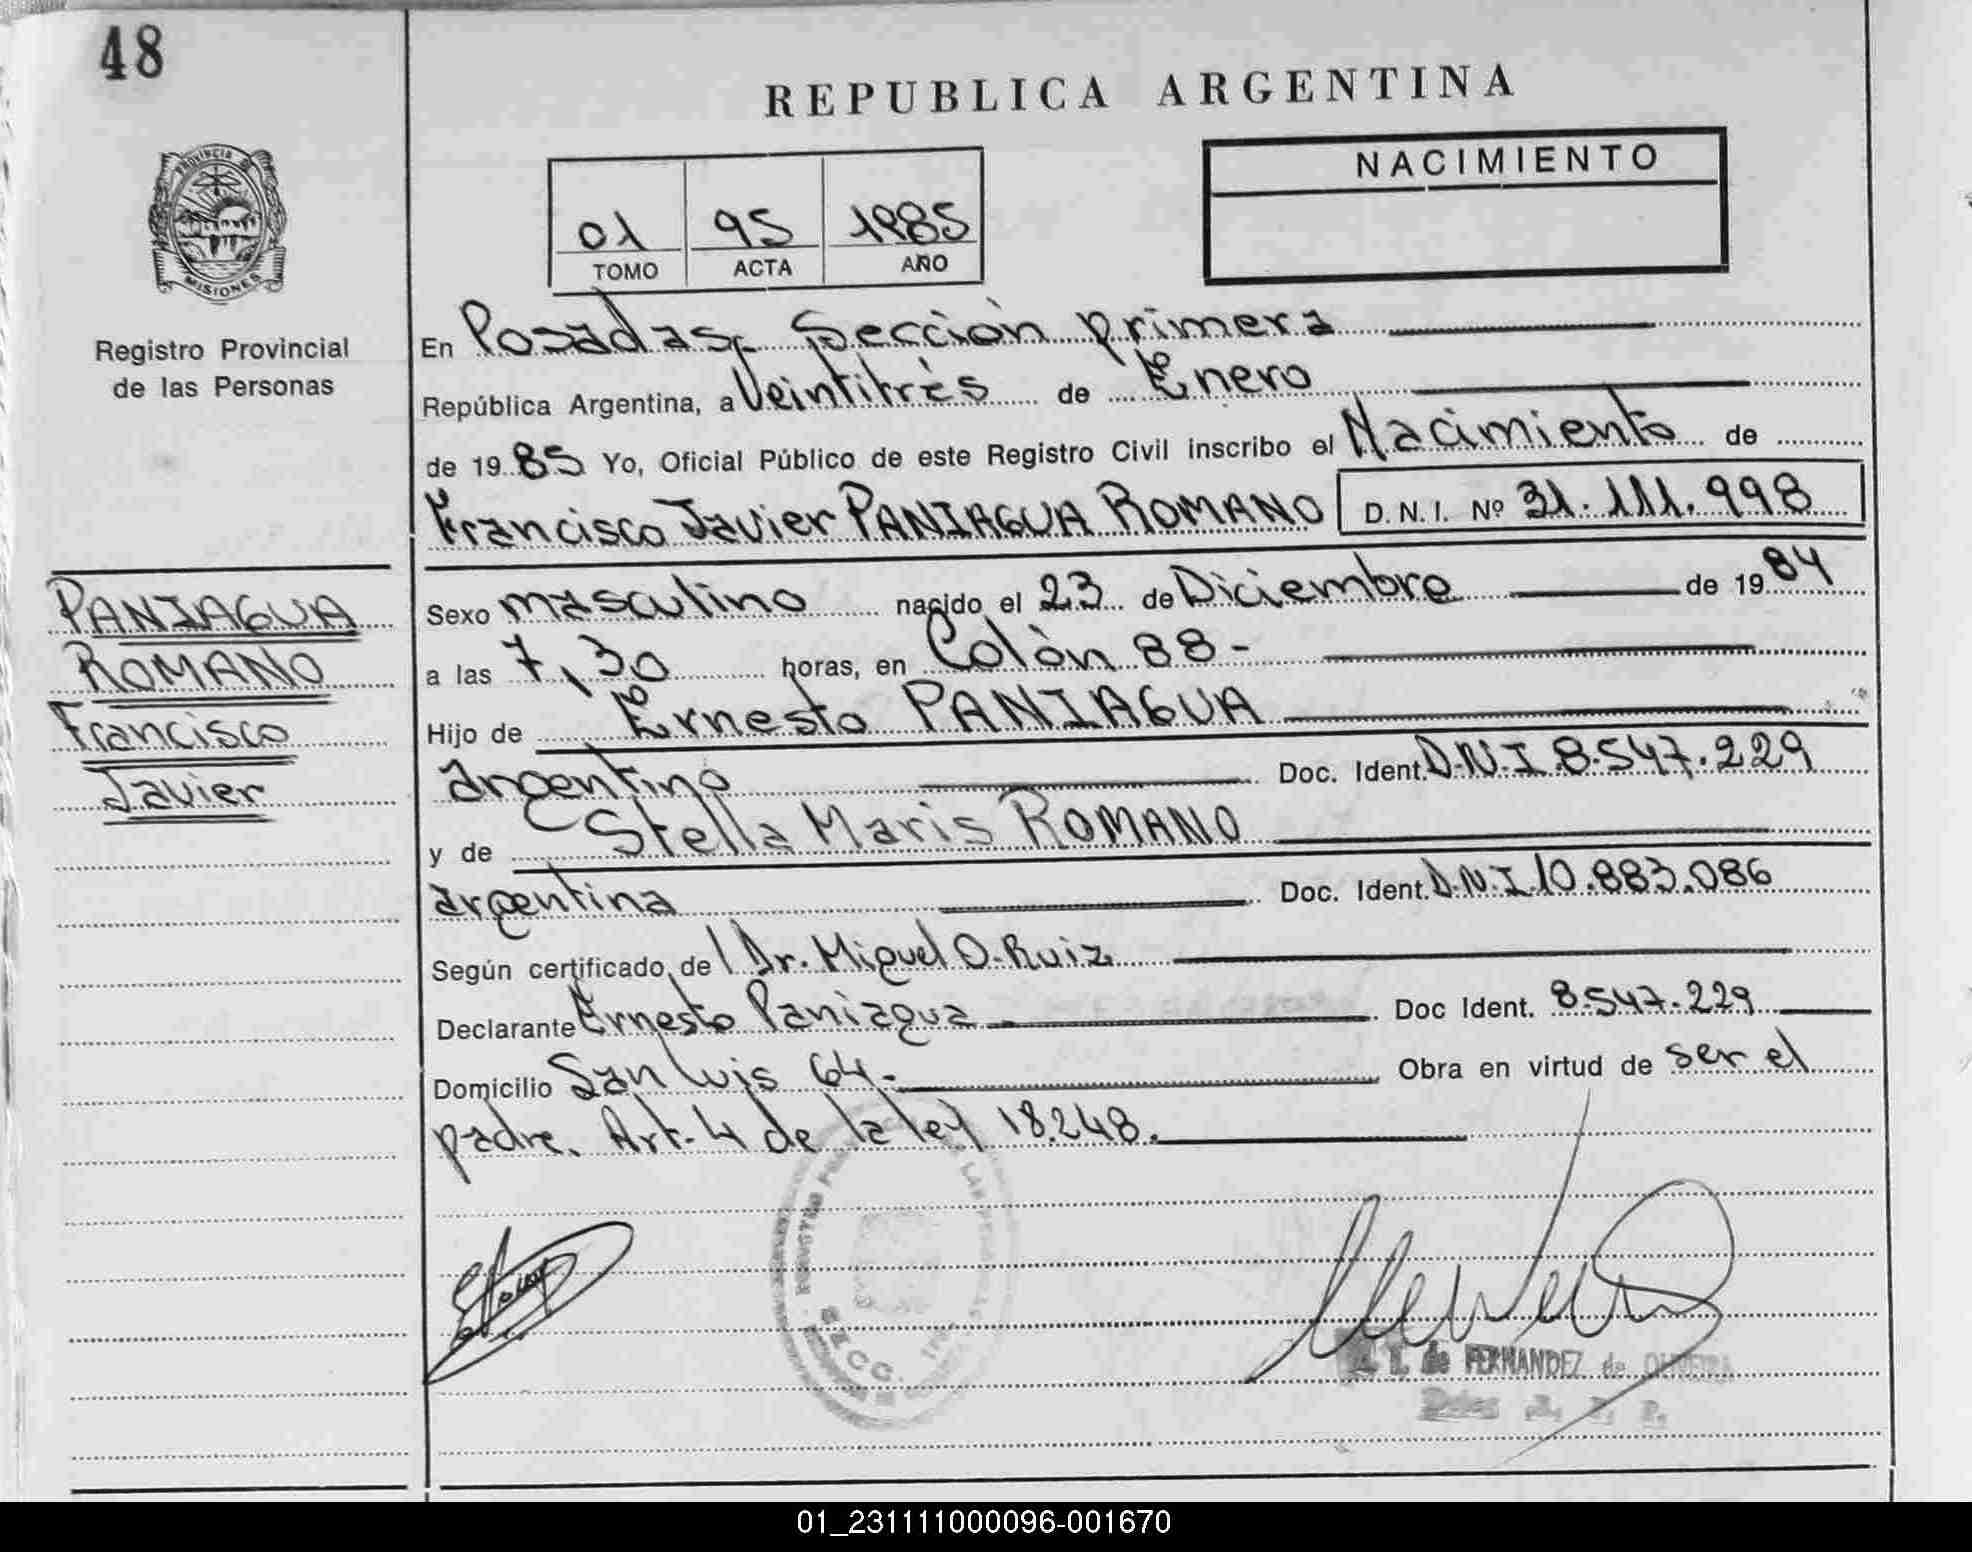 48
REPUBLICA ARGENTINA
NACIMIENTO
01 95 1985
TOMO ACTA AÑO
PROVINCIA DE
MISIONES
Registro Provincial
de las Personas
En Posadas, Sección primera
República Argentina, a Veintitrés de Enero
de 19 85 Yo, Oficial Público de este Registro Civil inscribo el Nacimiento de
Francisco Javier PANIAGUA ROMANO D.N.I. Nº 31.111.998
PANIAGUA
ROMANO
Francisco
Javier
Sexo masculino nacido el 23 de Diciembre de 19 84
a las 7,30 horas, en Colón 88-
Hijo de Ernesto PANIAGUA
argentino Doc. Ident. D.N.I. 8.547.229
y de Stella Maris ROMANO
argentina Doc. Ident. D.N.I. 10.883.086
Según certificado de l Dr. Miguel O. Ruiz
Declarante Ernesto Paniagua Doc Ident. 8.547.229
Domicilio San Luis 64.- Obra en virtud de ser el
padre. Art. 4 de la ley 18.248.
T. de FERNANDEZ de OLIVEIRA
01_231111000096-001670